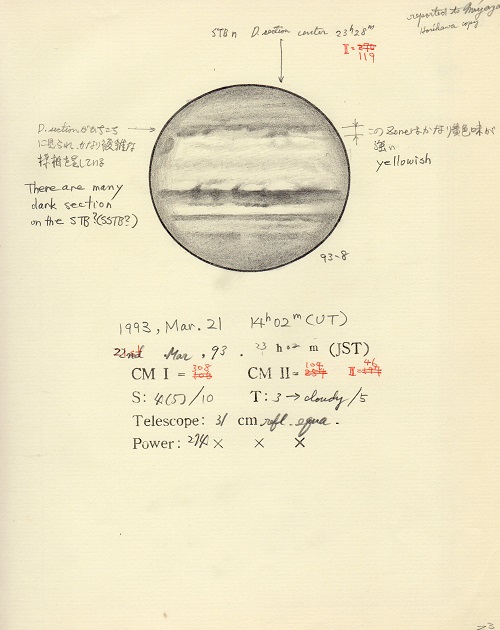 reported to Miyazaki
Horikawa copy
STBn D. section center 23h28m
II = 290
119
D. sectionがあちこち
に見られ、かなり複雑な
模様を呈している
There are many
dark section
on the STB?(SSTB?)
このZoneはかなり黄色味が
強い
yellowish
93-8
1993, Mar. 21 14h02m (UT)
Mar, 93. 23 h 02 m (JST)
308 109 46
CM I = CM II = II =
S: 4(5)/10 T: 3 → cloudy/5
Telescope: 31 cm refl. equa.
Power: 274 × × ×